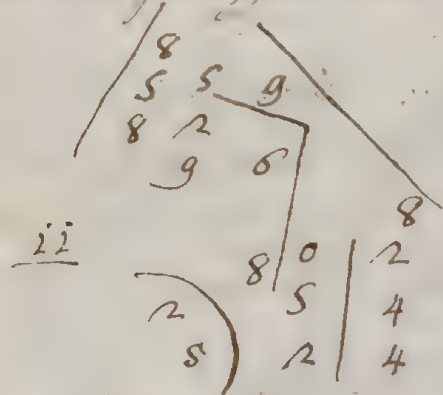 8
5 5 9
8 2
9 6
8
ii
8 0 2
2 5 4
5 2 4